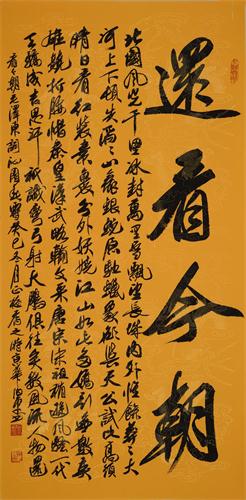 還看今朝
北國風光千里冰封萬里雪飄望長城内外惟餘莽莽大
河上下頓失滔滔山舞銀蛇原馳蠟象欲與天公試比高須
晴日看紅裝素裹分外妖嬈江山如此多嬌引無數英
雄競折腰惜秦皇漢武略輸文采唐宗宋祖稍遜風騷一代
天驕成吉思汗祇識彎弓射大鵰俱往矣數風流人物還
看今朝毛澤東詞沁園春雪癸巳冬月